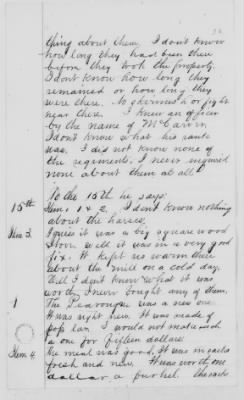 thing about them. I don't know
how long they had been there
before they took the property.
I don't know how long they
remained or how long they
were there. No skirmish or fight
near there. I knew an officer
by the name of McCarvin
I don't know what his rank
was. I did not know none of
the regiments. I never inquired
none about them at all.
To the 15th he says:
15th
Item 1 & 2. I don't know nothing
about the horses.
Item 3.
I guess it was a big square wood
Stove. Well it was in a very good
fix. It kept us warm there
about the mill on a cold day.
Well I don't know what it was
worth. I never bought any of them.
1
The was a new one
It was right new. It was made of
poplar. I would not make such
a one for fifteen dollars.
Item 4.
The meal was good. It was in sacks
fresh and new. It was worth one
dollar a bushel. The sacks